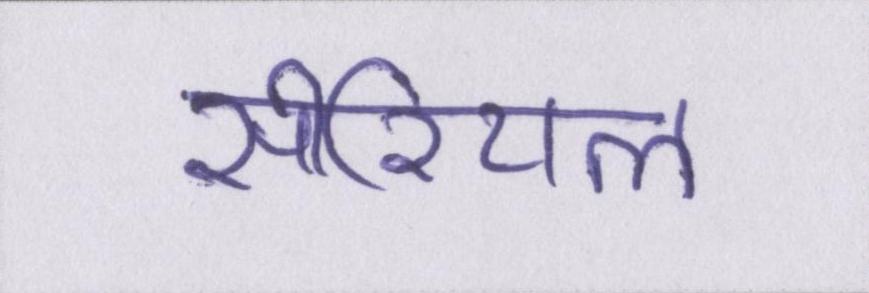 सीरियल